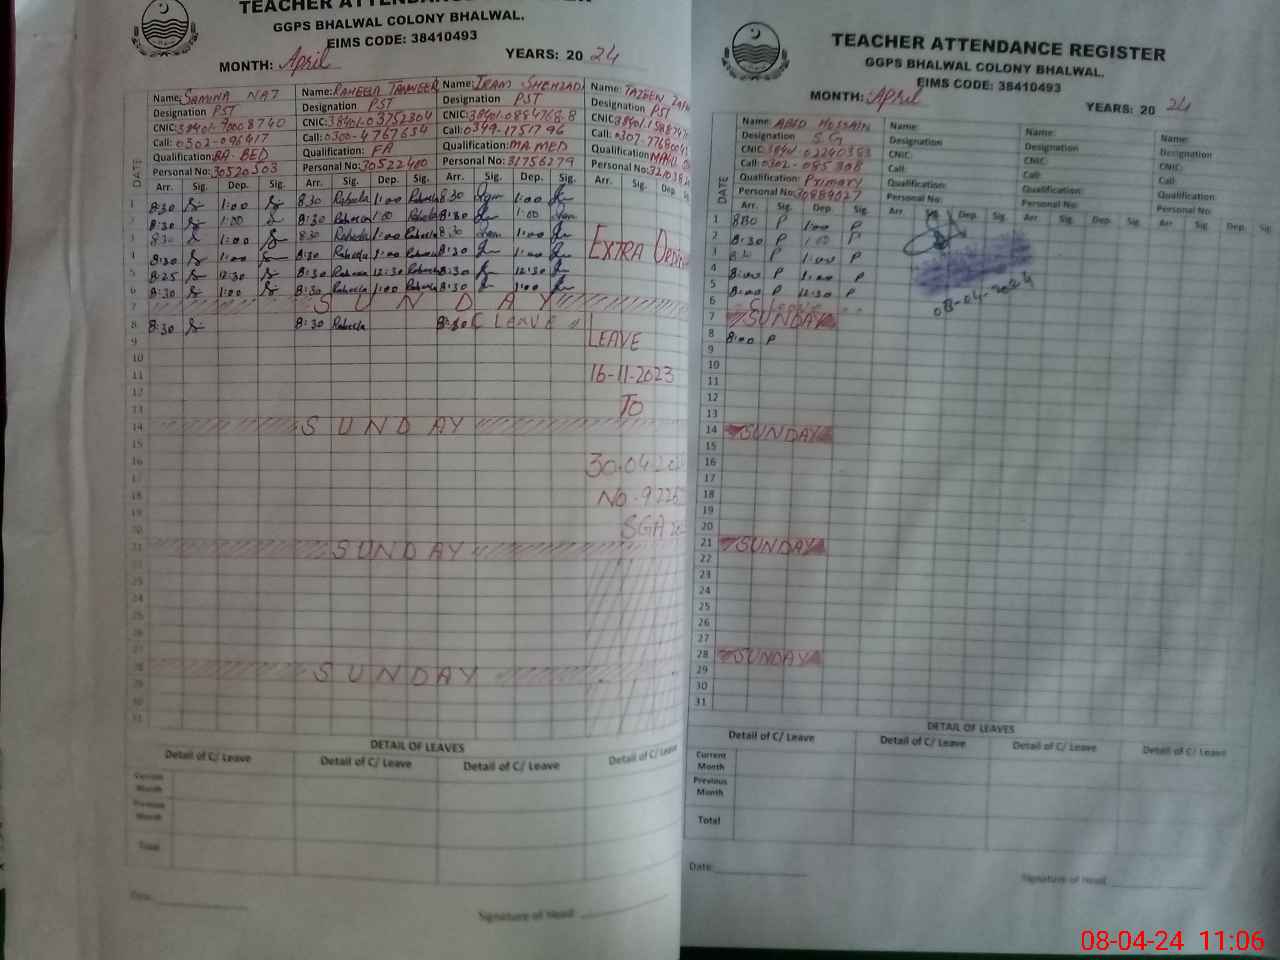 TEACHER ATTENDANCE REGISTER
GGPS BHALWAL COLONY BHALWAL.
EIMS CODE: 38410493
MONTH: April YEARS: 20 24
Name: SAMINA NAZ
Designation PST
Qualification: BA BED
Personal No: 30520503
Name: RAHEELA TANVEER
Designation PST
Call: 0300-4767634
Qualification: FA
Personal No: 30522400
Name: IRAM SHEHZADI
Designation PST
Call: 0349-1751796
Qualification: MA MED
Personal No: 31756279
Designation PST
DATE Arr. Sig. Dep. Sig. Arr. Sig. Dep. Sig. Arr. Sig. Dep. Sig. Arr. Sig. Dep
1 8:30 1:00 8:30 Raheela 1:00 Raheela 8:30 1:00
2 8:30 1:00 8:30 1:00 8:30 1:00
3 8:30 1:00 8:30 Raheela 1:00 Raheela 8:30 1:00
4 8:30 1:00 8:30 Raheela 1:00 Raheela 8:30 1:00
5 8:25 12:30 8:30 12:30 8:30 12:30
6 8:30 1:00 8:30 Raheela 1:00 Raheela 8:30 1:00
EXTRA
7 SUNDAY
8 8:30 8:30 Raheela C LEAVE
9 LEAVE
10
11 16-11-2023
12
13 TO
14 SUNDAY
15
16 30.04
17
18
19
20 SGA
21 SUNDAY
22
23
24
25
26
27
28 SUNDAY
29
30
31
DETAIL OF LEAVES
Detail of C/ Leave Detail of C/ Leave Detail of C/ Leave Detail of C/ Leave
Current Month
Previous Month
Total
Date:
Signature of Head:
TEACHER ATTENDANCE REGISTER
GGPS BHALWAL COLONY BHALWAL.
EIMS CODE: 38410493
MONTH: April YEARS: 20 24
Name: ABID HUSSAIN Name: Name: Name:
Designation S.G Designation Designation Designation
CNIC: CNIC: CNIC: CNIC:
Call: Call: Call: Call:
Qualification: Primary Qualification: Qualification: Qualification:
Personal No: 30889027 Personal No: Personal No: Personal No:
DATE Arr. Sig. Dep. Sig. Arr Dep. Sig. Arr Sig. Dep. Sig. Arr Sig. Dep. Sig.
1 830 P 1:00 P
2 8:30 P 1:00 P
3 8:30 P 1:00 P
4 8:00 P 1:00 P
5 8:00 P 12:30 P
6
08-04-2024
7 SUNDAY
8 8:00 P
9
10
11
12
13
14 SUNDAY
15
16
17
18
19
20
21 SUNDAY
22
23
24
25
26
27
28 SUNDAY
29
30
31
DETAIL OF LEAVES
Detail of C/ Leave Detail of C/ Leave Detail of C/ Leave Detail of C/ Leave
Current Month
Previous Month
Total
Date:
Signature of Head:
08-04-24 11:06